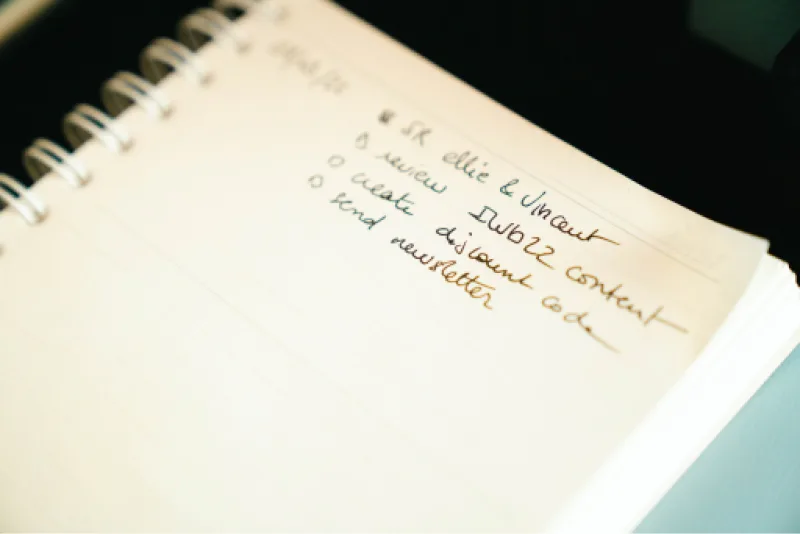 SR Ellie & Vincent
review IWD22 content
create discount code
send newsletter